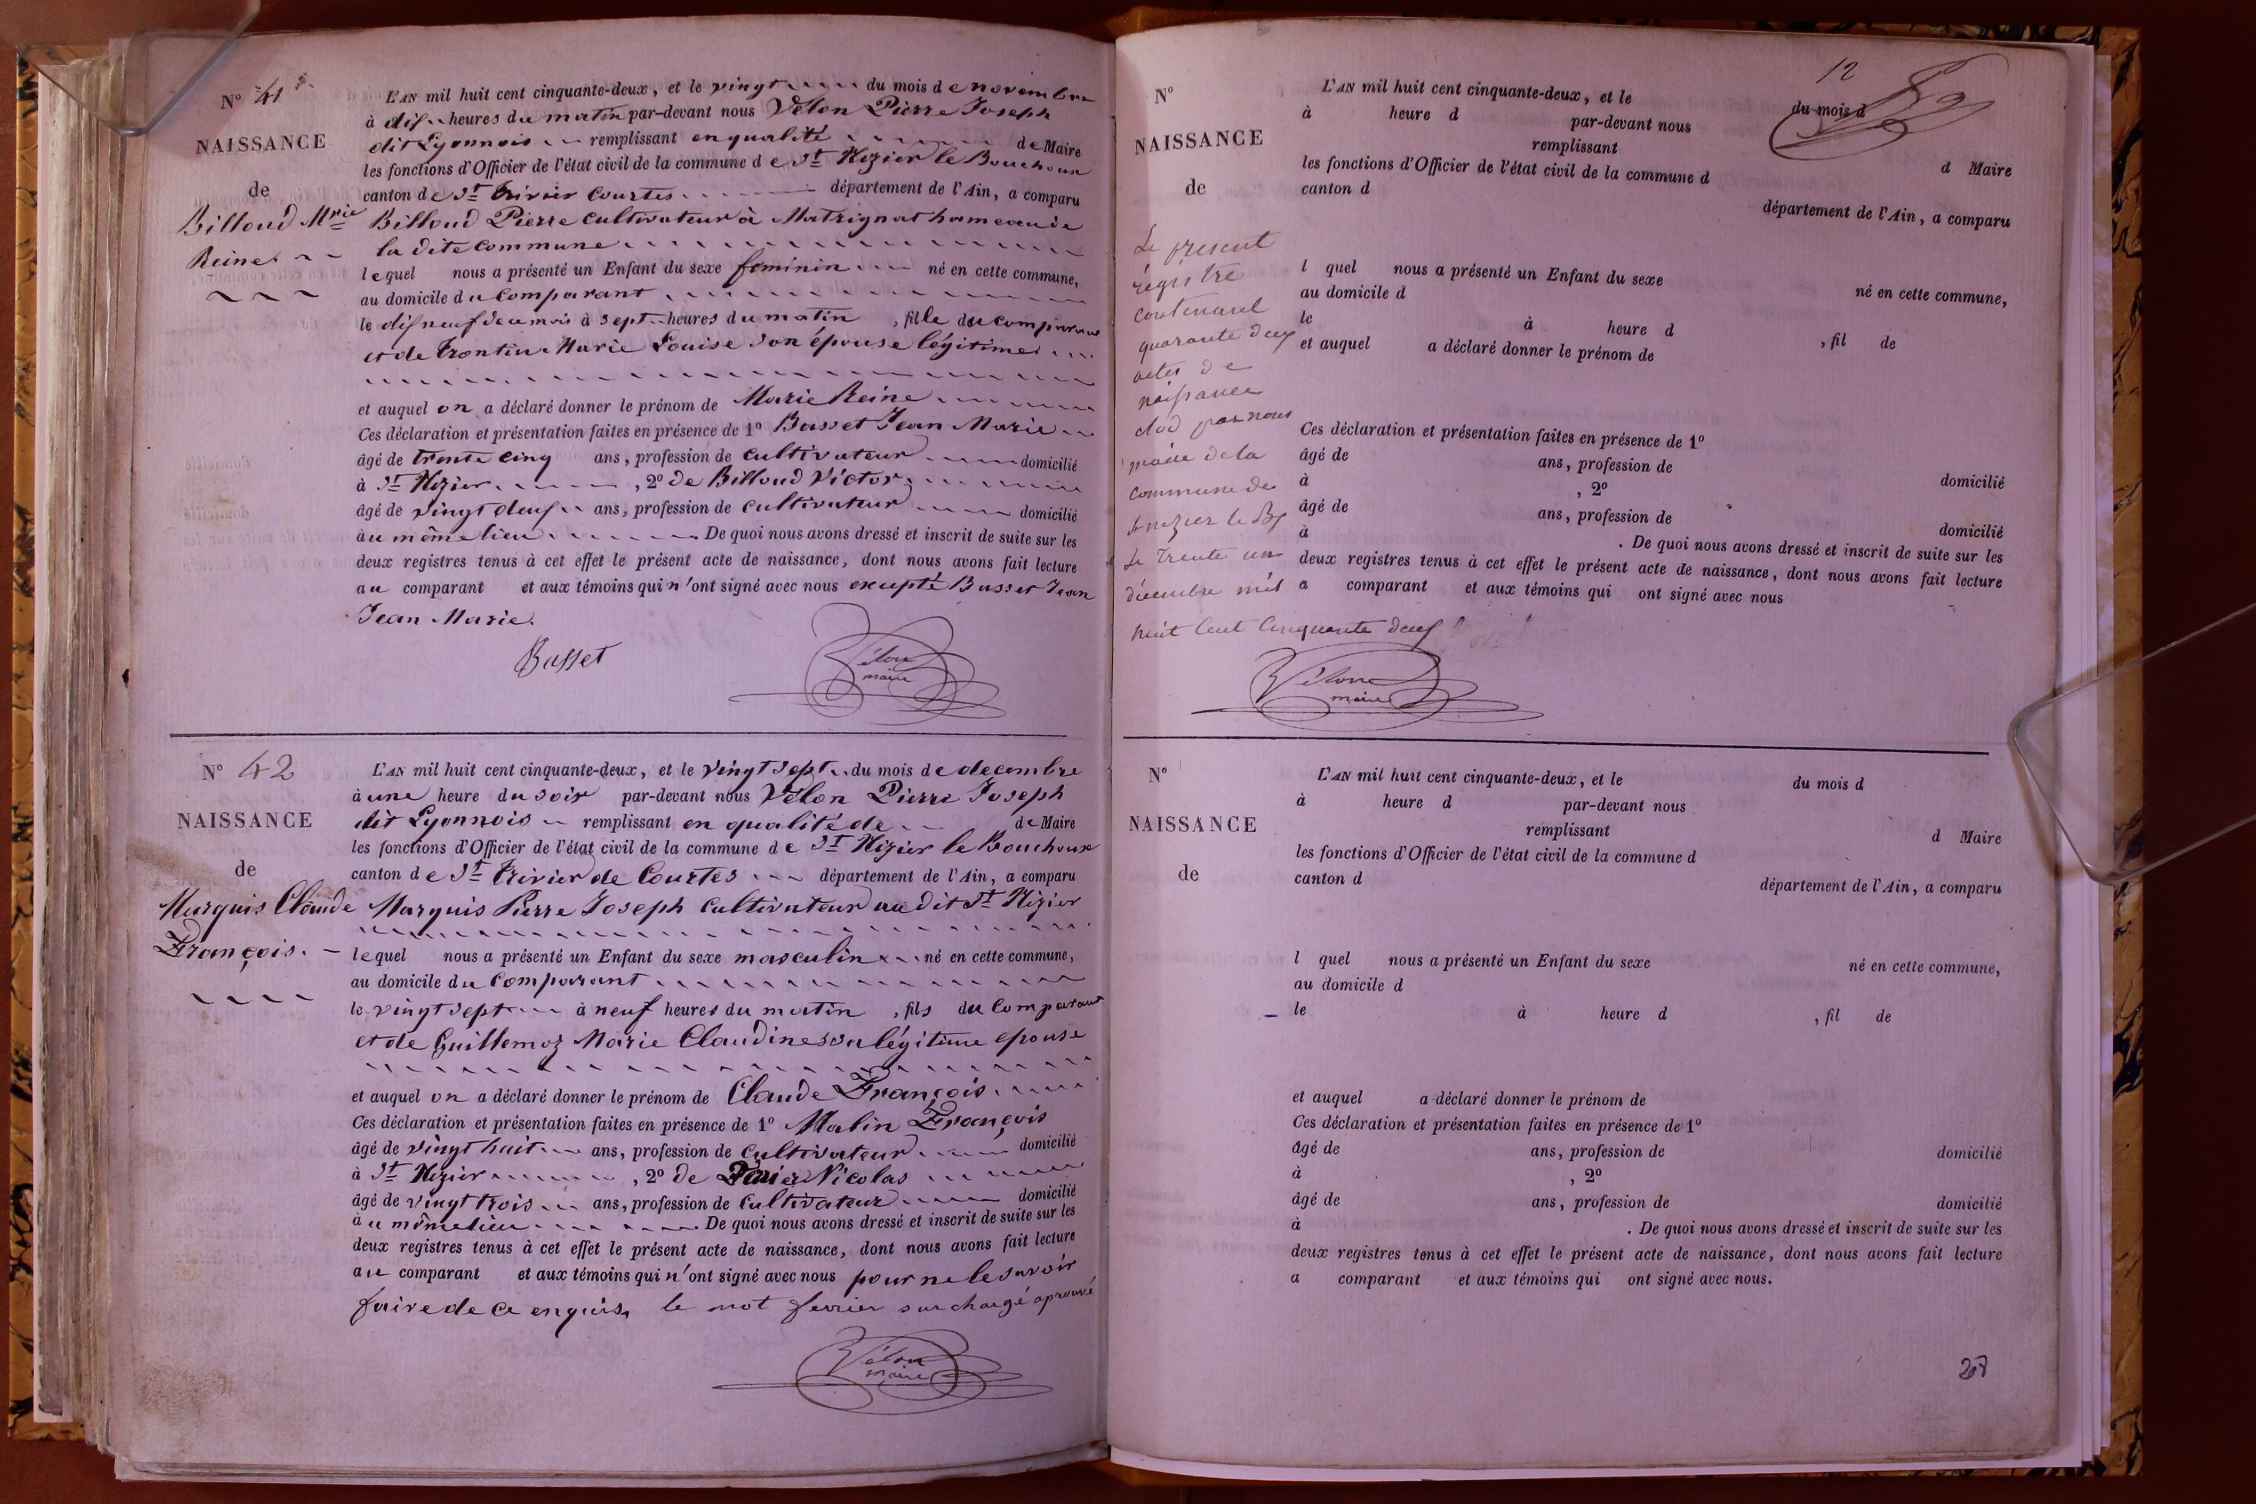 N° 41
NAISSANCE
de
Billoud Mrie
Reine
L'AN mil huit cent cinquante-deux, et le vingt du mois de novembre
à dix heures du matin par-devant nous Vélon Pierre Joseph
dit Lyonnois remplissant en qualité de Maire
les fonctions d'Officier de l'état civil de la commune de St Nizier le Bouchoux
canton de St Trivier Courtes département de l'Ain, a comparu
Billoud Pierre cultivateur à Matrignat hameau de
la dite commune
lequel nous a présenté un Enfant du sexe feminin né en cette commune,
au domicile du comparant
le dix neuf de ce mois à sept heures du matin, fille du comparant
et de Trontin Marie Louise son épouse légitime
et auquel on a déclaré donner le prénom de Marie Reine
Ces déclaration et présentation faites en présence de 1° Basset Jean Marie
âgé de trente cinq ans, profession de cultivateur domicilié
à St Nizier, 2° de Billoud Victor
âgé de vingt deux ans, profession de cultivateur domicilié
au même lieu. De quoi nous avons dressé et inscrit de suite sur les
deux registres tenus à cet effet le présent acte de naissance, dont nous avons fait lecture
au comparant et aux témoins qui n'ont signé avec nous excepté Basset Jean
Jean Marie.
Basset
Vélon
maire
N° 42
NAISSANCE
de
Marquis Claude
François.
L'AN mil huit cent cinquante-deux, et le vingt sept du mois de decembre
à une heure du soir par-devant nous Vélon Pierre Joseph
dit Lyonnois remplissant en qualité de de Maire
les fonctions d'Officier de l'état civil de la commune de St Nizier le Bouchoux
canton de St Trivier de Courtes département de l'Ain, a comparu
Marquis Pierre Joseph cultivateur au dit St Nizier
lequel nous a présenté un Enfant du sexe masculin né en cette commune,
au domicile du comparant
le vingt sept à neuf heures du matin, fils du comparant
et de Guillemoz Marie Claudine sa légitime epouse
et auquel on a déclaré donner le prénom de Claude François
Ces déclaration et présentation faites en présence de 1° Malin François
âgé de vingt huit ans, profession de cultivateur domicilié
à St Nizier, 2° de Nicolas
âgé de vingt trois ans, profession de cultivateur domicilié
au même lieu. De quoi nous avons dressé et inscrit de suite sur les
deux registres tenus à cet effet le présent acte de naissance, dont nous avons fait lecture
au comparant et aux témoins qui n'ont signé avec nous pour ne le savoir
faire de ce enquis, le mot surchargé aprouvé
Vélon
maire
12
N°
NAISSANCE
de
L'AN mil huit cent cinquante-deux, et le du mois d
à heure d par-devant nous
remplissant d Maire
les fonctions d'Officier de l'état civil de la commune d
canton d département de l'Ain, a comparu
l quel nous a présenté un Enfant du sexe né en cette commune,
au domicile d
le à heure d, fil de
et auquel a déclaré donner le prénom de
Ces déclaration et présentation faites en présence de 1°
âgé de ans, profession de domicilié
à, 2°
âgé de ans, profession de domicilié
à. De quoi nous avons dressé et inscrit de suite sur les
deux registres tenus à cet effet le présent acte de naissance, dont nous avons fait lecture
a comparant et aux témoins qui ont signé avec nous
Le présent
régistre
contenant
quarante deux
actes de
naissance
clod par nous
maire de la
commune de
St nizier le Bx
le trente un
décembre mil
huit cent cinquante deux
Vélon
maire
N°
NAISSANCE
de
L'AN mil huit cent cinquante-deux, et le du mois d
à heure d par-devant nous
remplissant d Maire
les fonctions d'Officier de l'état civil de la commune d
canton d département de l'Ain, a comparu
l quel nous a présenté un Enfant du sexe né en cette commune,
au domicile d
le à heure d, fil de
et auquel a déclaré donner le prénom de
Ces déclaration et présentation faites en présence de 1°
âgé de ans, profession de domicilié
à, 2°
âgé de ans, profession de domicilié
à. De quoi nous avons dressé et inscrit de suite sur les
deux registres tenus à cet effet le présent acte de naissance, dont nous avons fait lecture
a comparant et aux témoins qui ont signé avec nous.